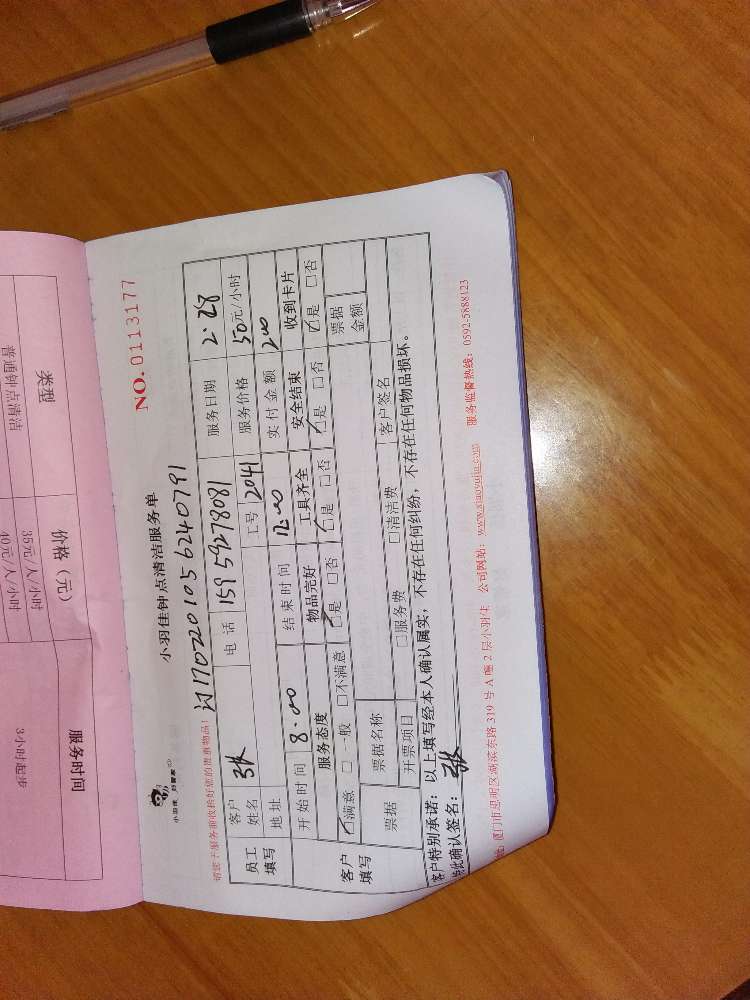 NO.0113177
小羽佳钟点清洁服务单
请您于服务前收拾好您的贵重物品!
201702201056240791
员工填写
客户姓名 张 电话 15959278081 服务日期 2.28
地址 工号 2041 服务价格 50元/小时
开始时间 8.00 结束时间 12.00 实付金额 200
客户填写
服务态度 物品完好 工具齐全 安全结束 收到卡片
☑满意 □一般 □不满意 ☑是 □否 ☑是 □否 ☑是 □否 ☑是 □否
票据 票据名称 票据金额
开票项目 □服务费 □清洁费 客户签名
客户特别承诺:以上填写经本人确认属实,不存在任何纠纷,不存在任何物品损坏。
特此确认签名: 张
地址:厦门市思明区湖滨东路319号A幢2层小羽佳 公司网站:www.xiaoyujia.com 服务监督热线:0592-5888123
类型 价格(元) 服务时间
普通钟点清洁 35元/人/小时 3小时起步
40元/人/小时